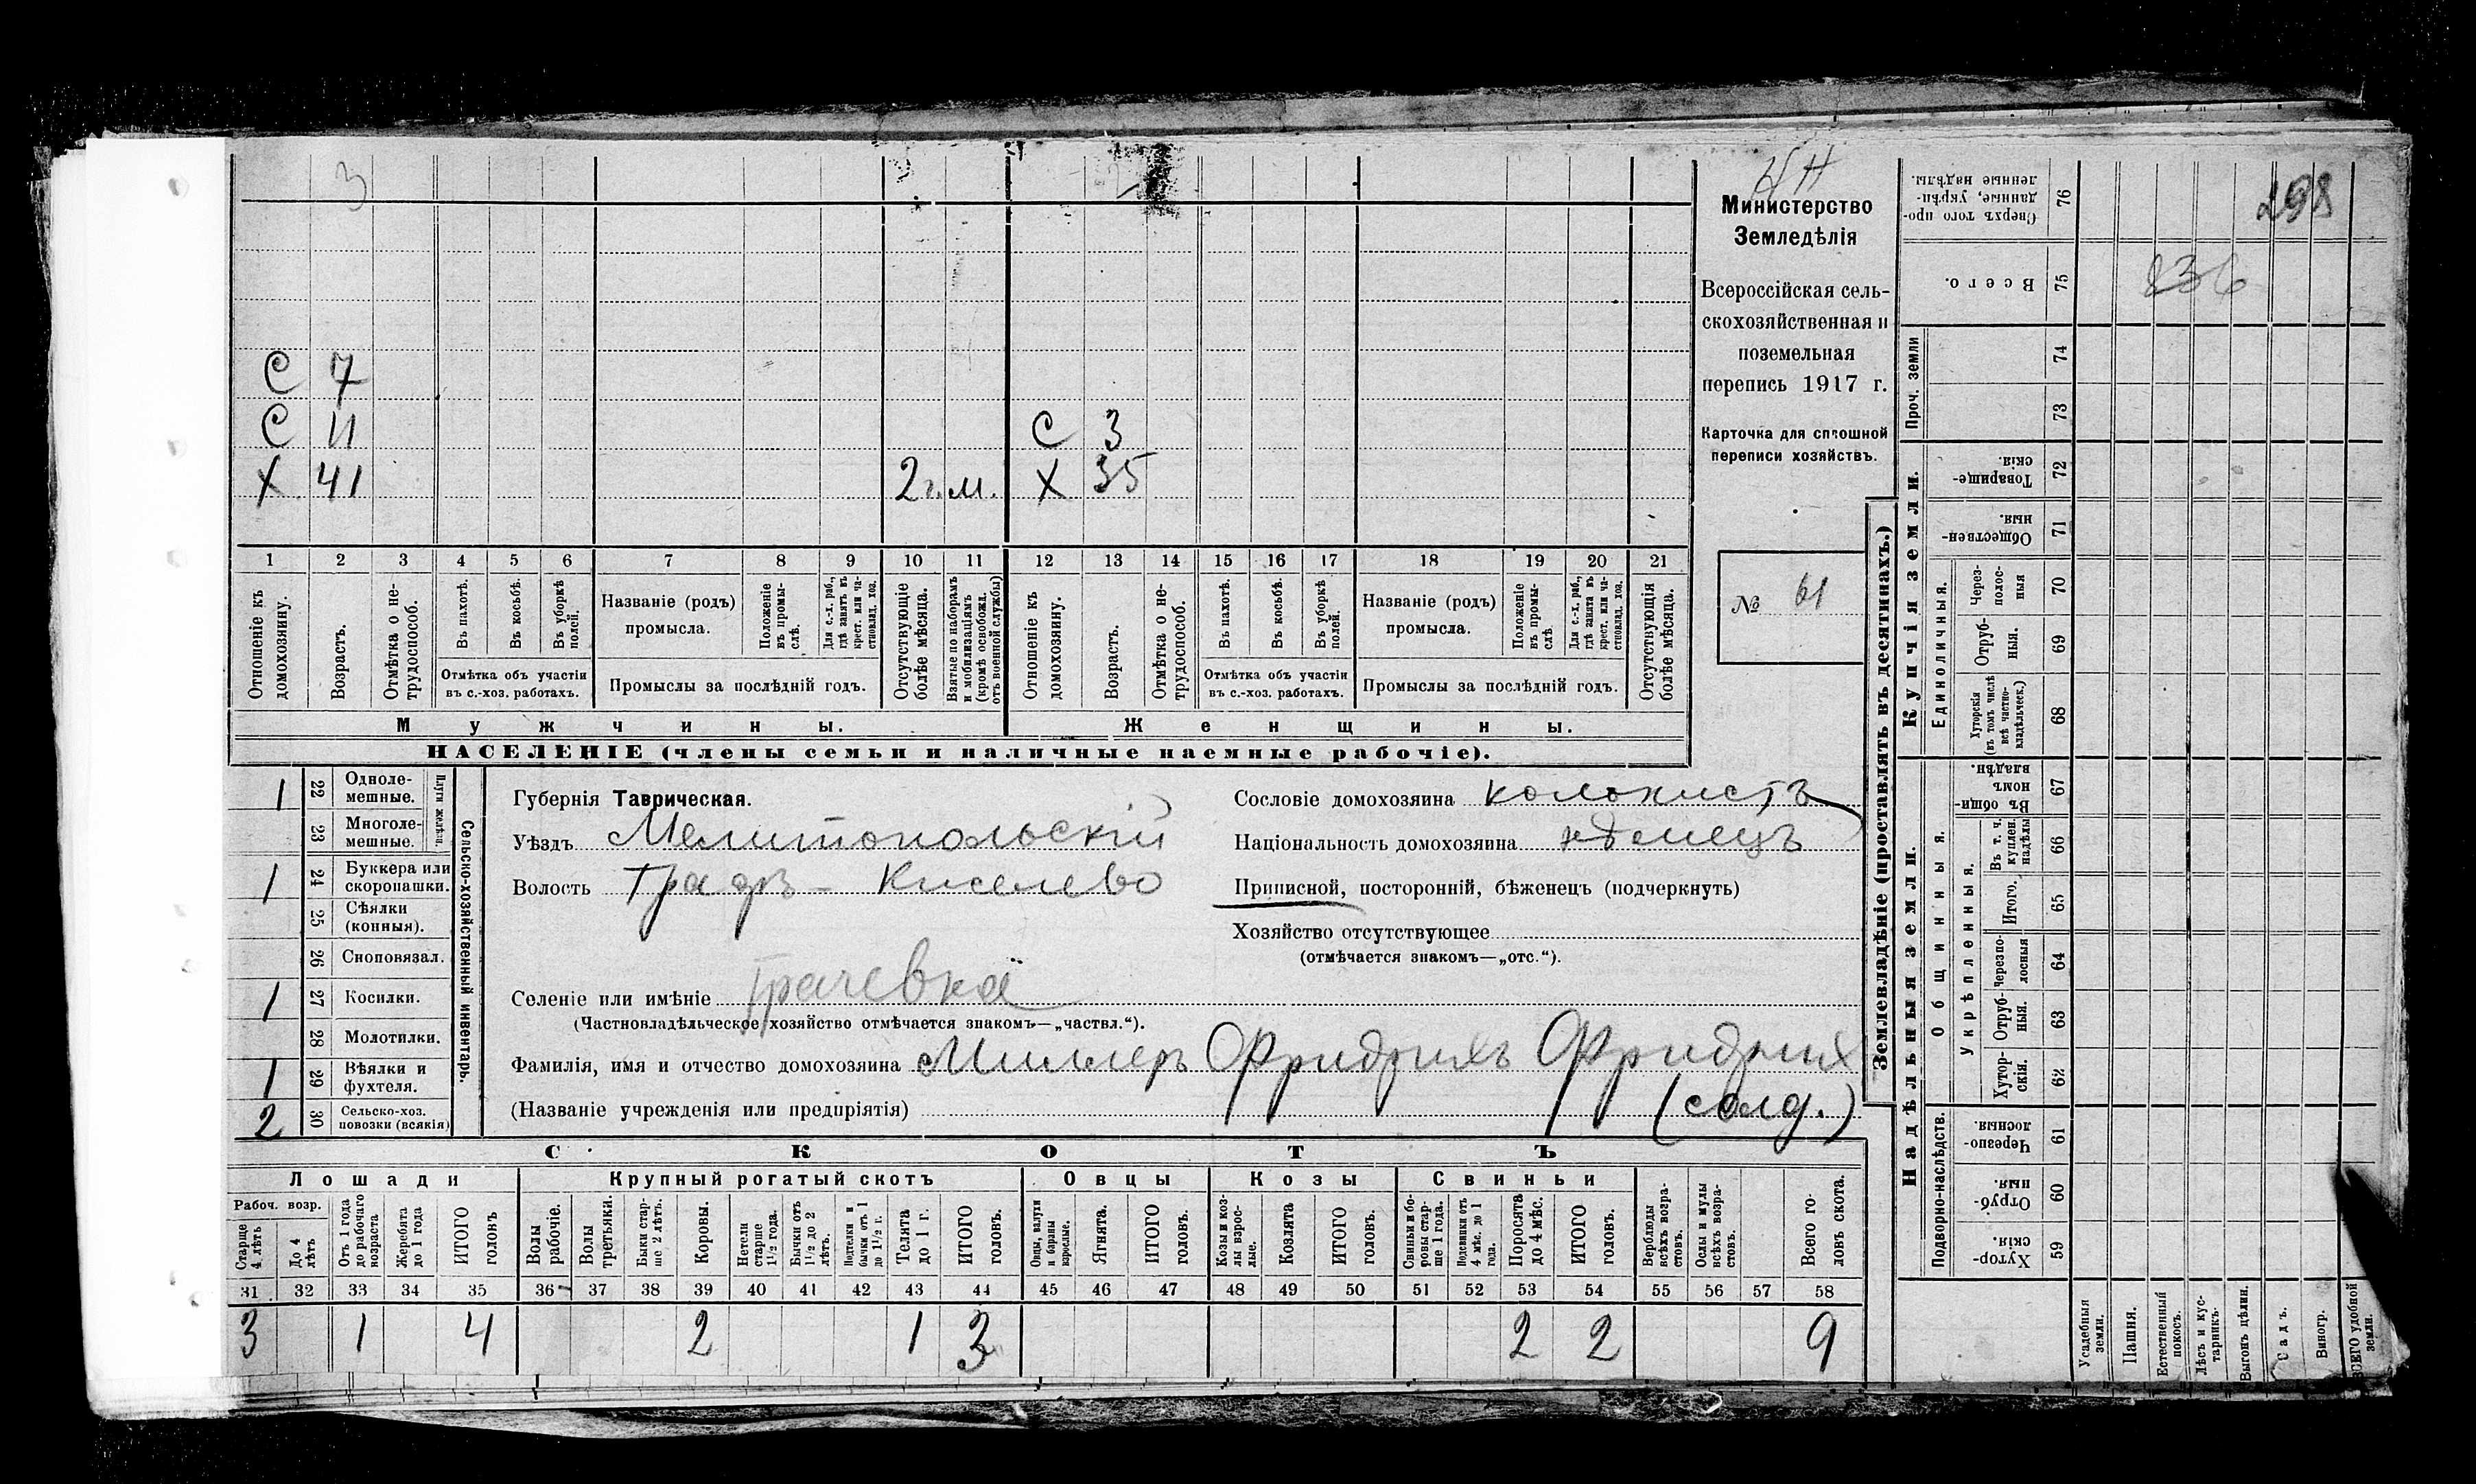 3
С 7
С 11 С 3
Х 41 2 г. м. Х 35
1 2 3 4 5 6 7 8 9 10 11 12 13 14 15 16 17 18 19 20 21
Отношеніе къ домохозяину.
Возрастъ.
Отмѣтка о нетрудоспособ.
Въ пахотѣ.
Въ косьбѣ.
Въ уборкѣ полей.
Отмѣтка объ участіи
въ с.-хоз. работахъ.
Названіе (родъ)
промысла.
Положеніе въ промыслѣ.
Для с.-х. раб., гдѣ занятъ въ крест. или частновлад. хоз.
Промыслы за послѣдній годъ.
Отсутствующіе болѣе мѣсяца.
Взятые по наборамъ и мобилизаціямъ (кромѣ освобожд. отъ военной службы)
Отношеніе къ домохозяину.
Возрастъ.
Отмѣтка о нетрудоспособ.
Въ пахотѣ.
Въ косьбѣ.
Въ уборкѣ полей.
Отмѣтка объ участіи
въ с.-хоз. работахъ.
Названіе (родъ)
промысла.
Положеніе въ промыслѣ
Для с.-х. раб., гдѣ занята въ крест. или частновлад. хоз.
Промыслы за послѣдній годъ.
Отсутствующія болѣе мѣсяца.
Мужчины. Женщины.
НАСЕЛЕНІЕ (члены семьи и наличные наемные рабочіе).
Министерство
Земледѣлія
Всероссійская сель-
скохозяйственная и
поземельная
перепись 1917 г.
Карточка для сплошной
переписи хозяйствъ.
№ 61
Сельско-хозяйственный инвентарь.
Плуги желѣзн.
1 22 Одноле-
мешные.
23 Многоле-
мешные.
1 24 Буккера или
скоропашки.
25 Сѣялки
(конныя).
26 Сноповязал.
1 27 Косилки.
28 Молотилки.
1 29 Вѣялки и
фухтеля.
2 30 Сельско-хоз.
повозки (всякія)
Губернія Таврическая.
Уѣздъ Мелитопольскій
Волость Градъ - Киселево
Селеніе или имѣніе Грачевка
(Частновладѣльческое хозяйство отмѣчается знакомъ—„частвл.“).
Фамилія, имя и отчество домохозяина Миллеръ Фридрихъ Фридрих
(Названіе учрежденія или предпріятія) (солд.)
Сословіе домохозяина колонистъ
Національность домохозяина нѣмецъ
Приписной, посторонній, бѣженецъ (подчеркнуть)
Хозяйство отсутствующее
(отмѣчается знакомъ—„отс.“).
СКОТЪ
Лошади Крупный рогатый скотъ Овцы Козы Свиньи
Рабоч. возр.
Старше 4 лѣтъ
До 4 лѣтъ
Отъ 1 года до рабочаго возраста
Жеребята до 1 года
ИТОГО головъ
Волы рабочіе.
Волы третьяки.
Быки старше 2 лѣтъ.
Коровы.
Нетели старше 1½ года.
Бычки отъ 1½ до 2 лѣтъ.
Подтелки и бычки отъ 1 до 1½ г.
Телята до 1 г.
ИТОГО головъ.
Овцы, валухи и бараны взрослые.
Ягнята.
ИТОГО головъ.
Козы и козлы взрослые.
Козлята
ИТОГО головъ.
Свиньи и боровы старше 1 года.
Подсвинки отъ 4 мѣс. до 1 года.
Поросята до 4 мѣс.
ИТОГО головъ.
Верблюды всѣхъ возрастовъ.
Ослы и мулы всѣхъ возрастовъ.
Всего головъ скота.
31 32 33 34 35 36 37 38 39 40 41 42 43 44 45 46 47 48 49 50 51 52 53 54 55 56 57 58
3 1 4 2 1 3 2 2 9
Землевладѣніе (проставлять въ десятинахъ.)
Сверхъ того проданные, укрѣпленные надѣлы. 76 298
Всего. 75 836
Проч. земли
74
73
Купчія земли.
Товарищескія. 72
Общественныя. 71
Единоличныя.
Черезполосныя 70
Отрубныя. 69
Хуторскія (въ томъ числѣ всѣ частновладѣльческ.) 68
Надѣльныя земли.
Общинныя.
Въ общинномъ владѣн. 67
Укрѣпленныя.
Въ т. ч. куплен. надѣлы 66
Итого. 65
Черезполосныя 64
Отрубныя. 63
Хуторскія. 62
Подворно-наслѣдств.
Черезполосныя. 61
Отрубныя. 60
Хуторскія. 59
Усадебныя земли.
Пашня.
Естественный покосъ.
Лѣсъ и кустарникъ.
Выгонъ цѣлин.
Садъ.
Виногр.
ВСЕГО удобной земли.